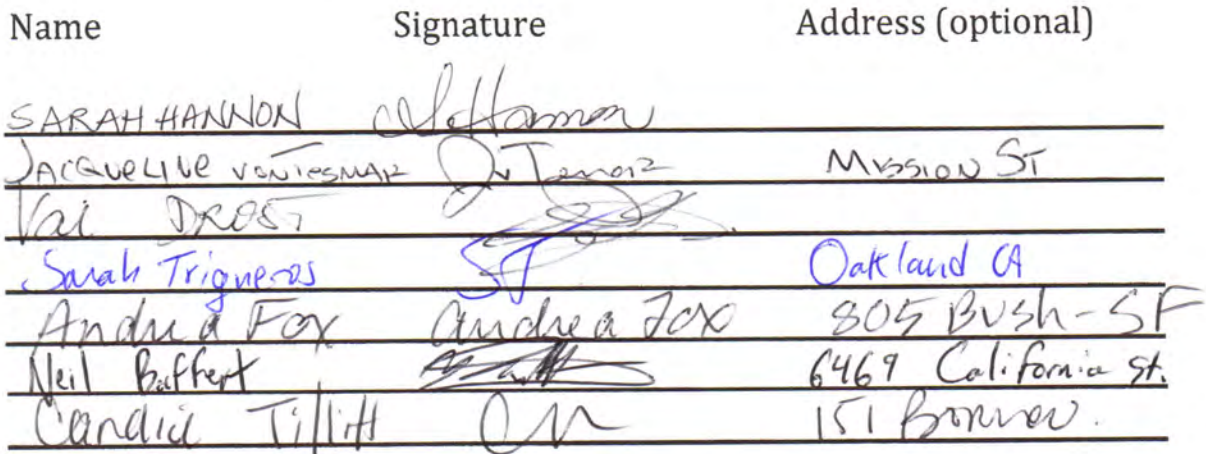 Name Signature Address (optional)
SARAH HANNON
JACQUELINE Mission ST
Val DROST
Sarah Trigueros ST Oakland CA
Andrea Fox Andrea Fox 805 Bush - SF
Neil Baffert 6469 California St.
Candice Tillitt 151